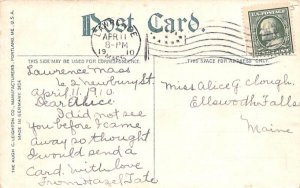 Post Card.
APR 11
8-PM
19 10
THIS SIDE MAY BE USED FOR CORRESPONDENCE
THIS SIDE IS FOR THE ADDRESS ONLY.
THE HUGH C. LEIGHTON CO., MANUFACTURERS, PORTLAND, ME., U.S.A.
MADE IN GERMANY
Lawrence Mass
62 Newbury St.
April 11. 1910.
Dear Alice.
I did not see
you before I came
away so thought
I would send a
Card. With love
From Hazel Tate
Miss Alice G Clough.
Ellsworth Falls
Maine